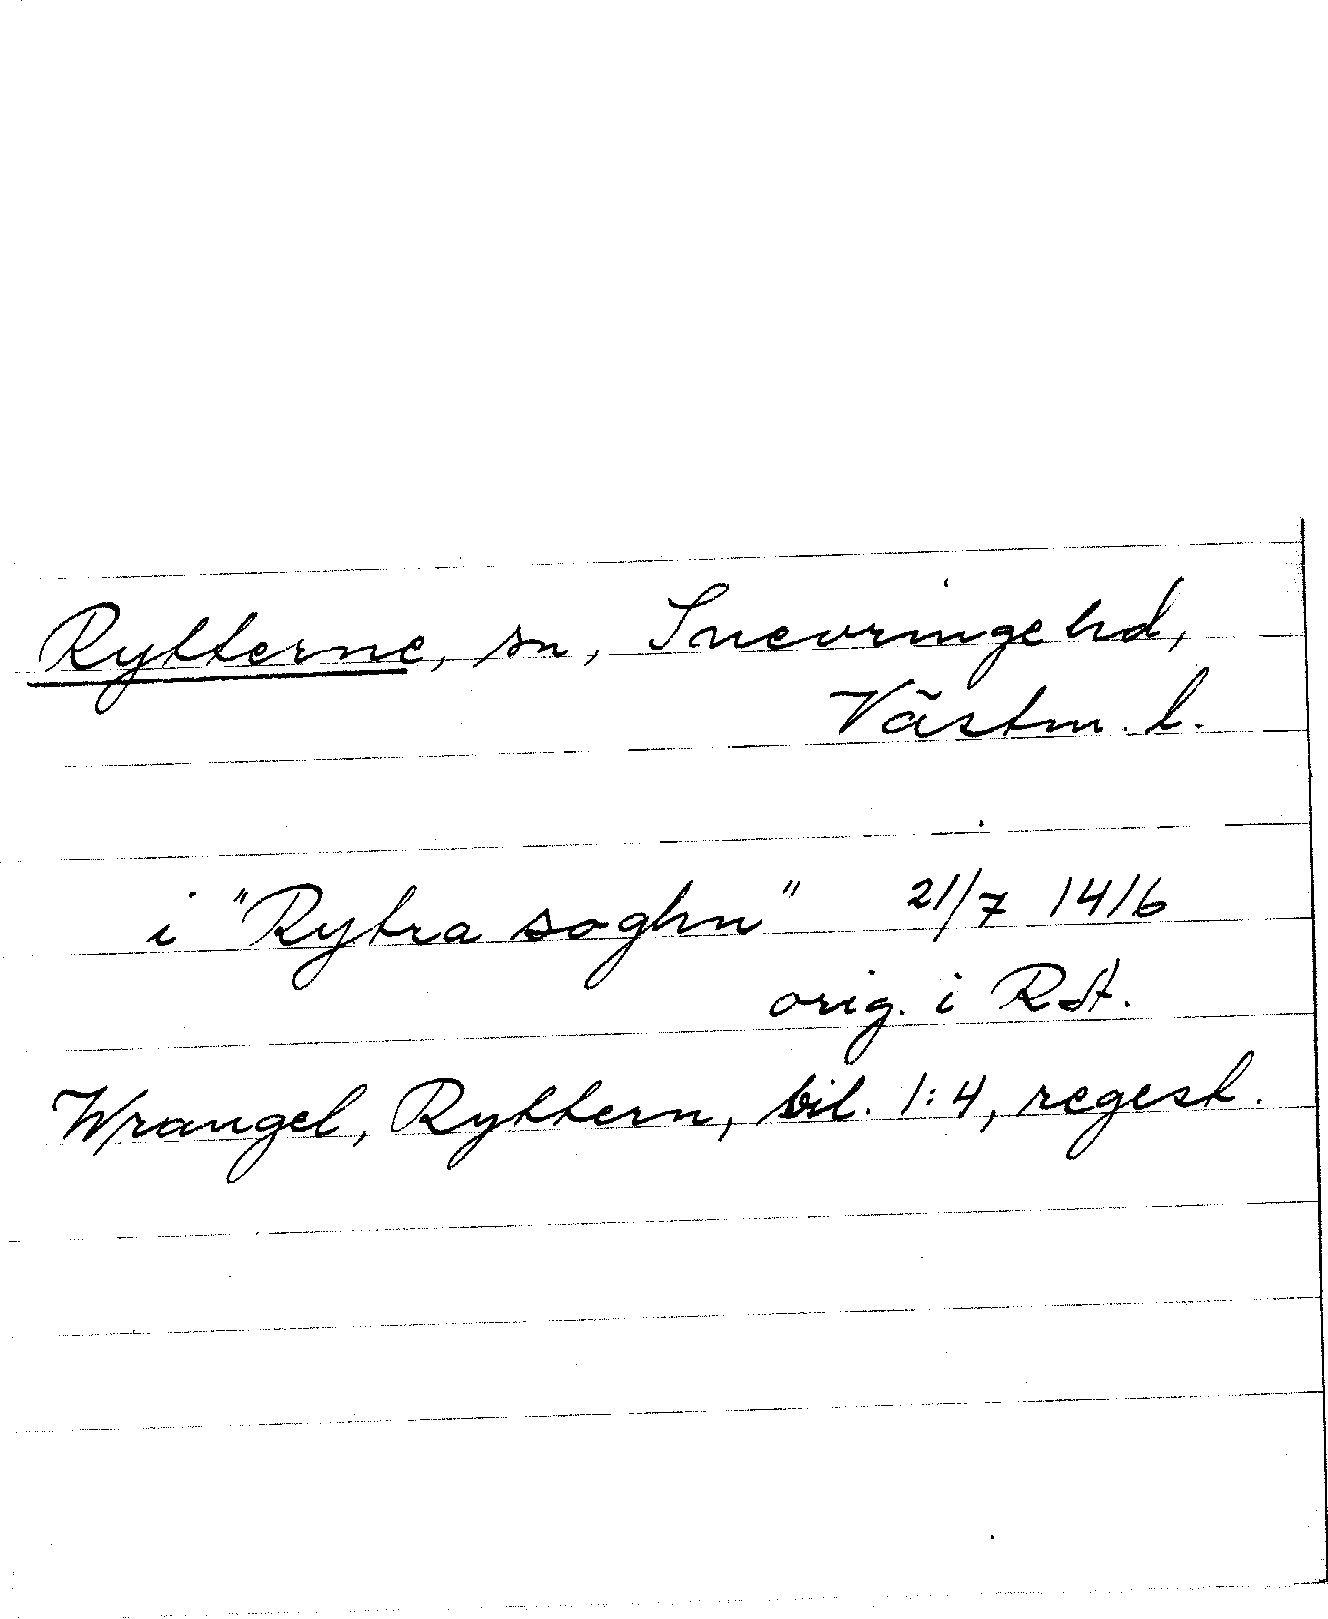 Rytterne, sn, Snevringe hd,
Västm. l.
i "Rytra soghn" 21/7 1416
orig. i RA.
Wrangel, Ryttern, bil. 1:4, regest.